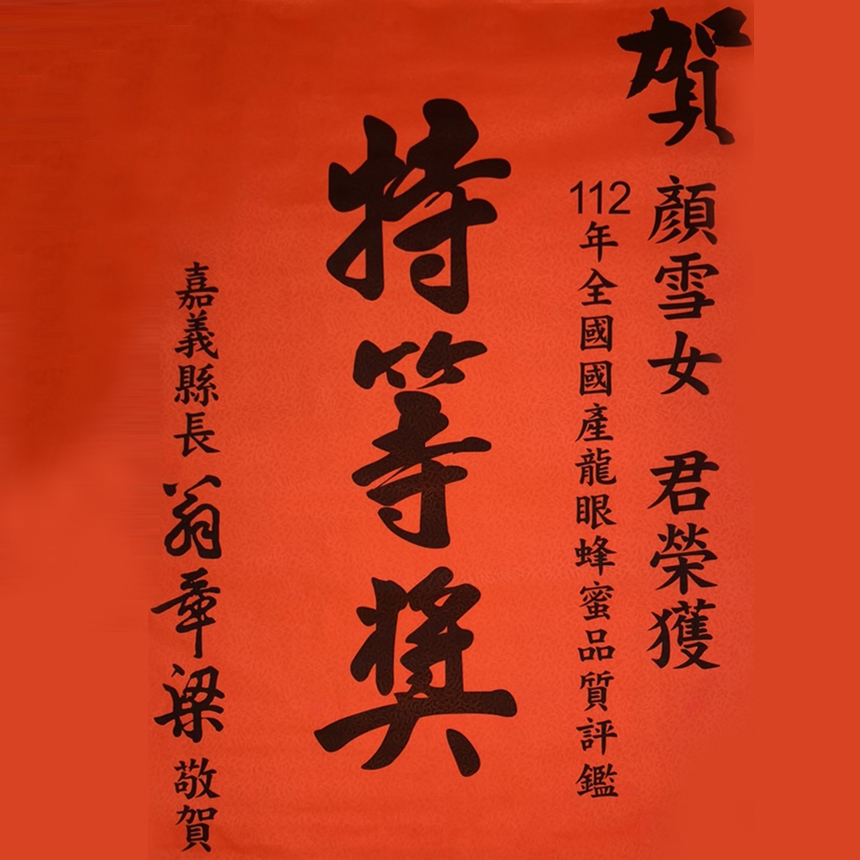 賀
顏雪女 君榮獲
112年全國國產龍眼蜂蜜品質評鑑
特等獎
嘉義縣長 翁章梁 敬賀